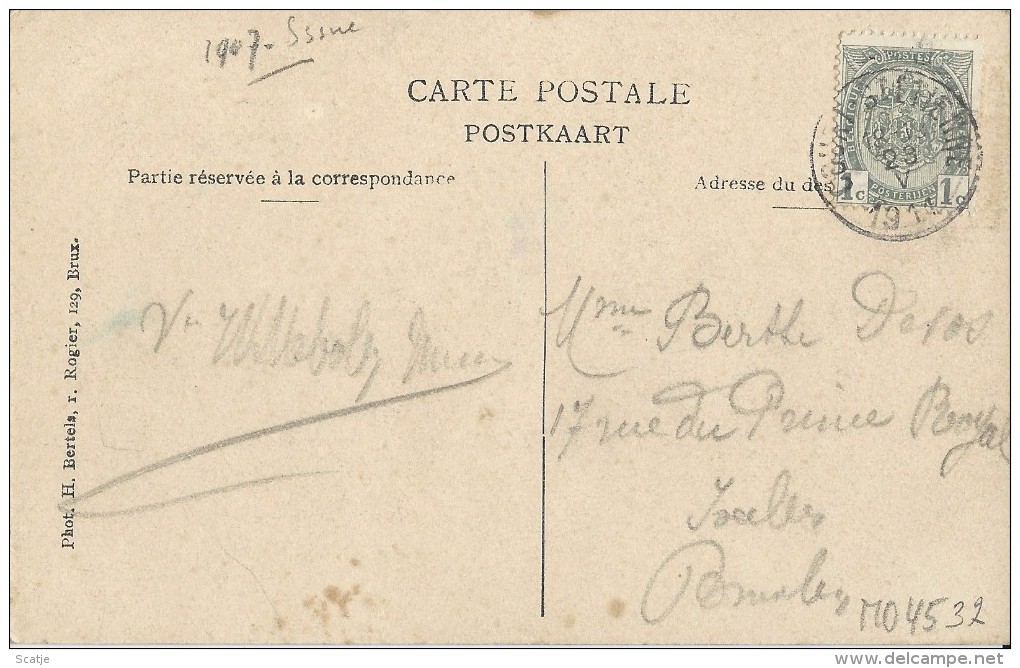 1907-
CARTE POSTALE
POSTKAART
Partie réservée à la correspondance
Adresse du des
POSTES
POSTERIJEN
1c 1c
23
V
191
Phot. H. Bertels, r. Rogier, 129, Brux.
Mme Berthe Devos
17 rue du Prince Royal
Ixelles
Bruxelles
MO4532
Scatje
delcampe.net